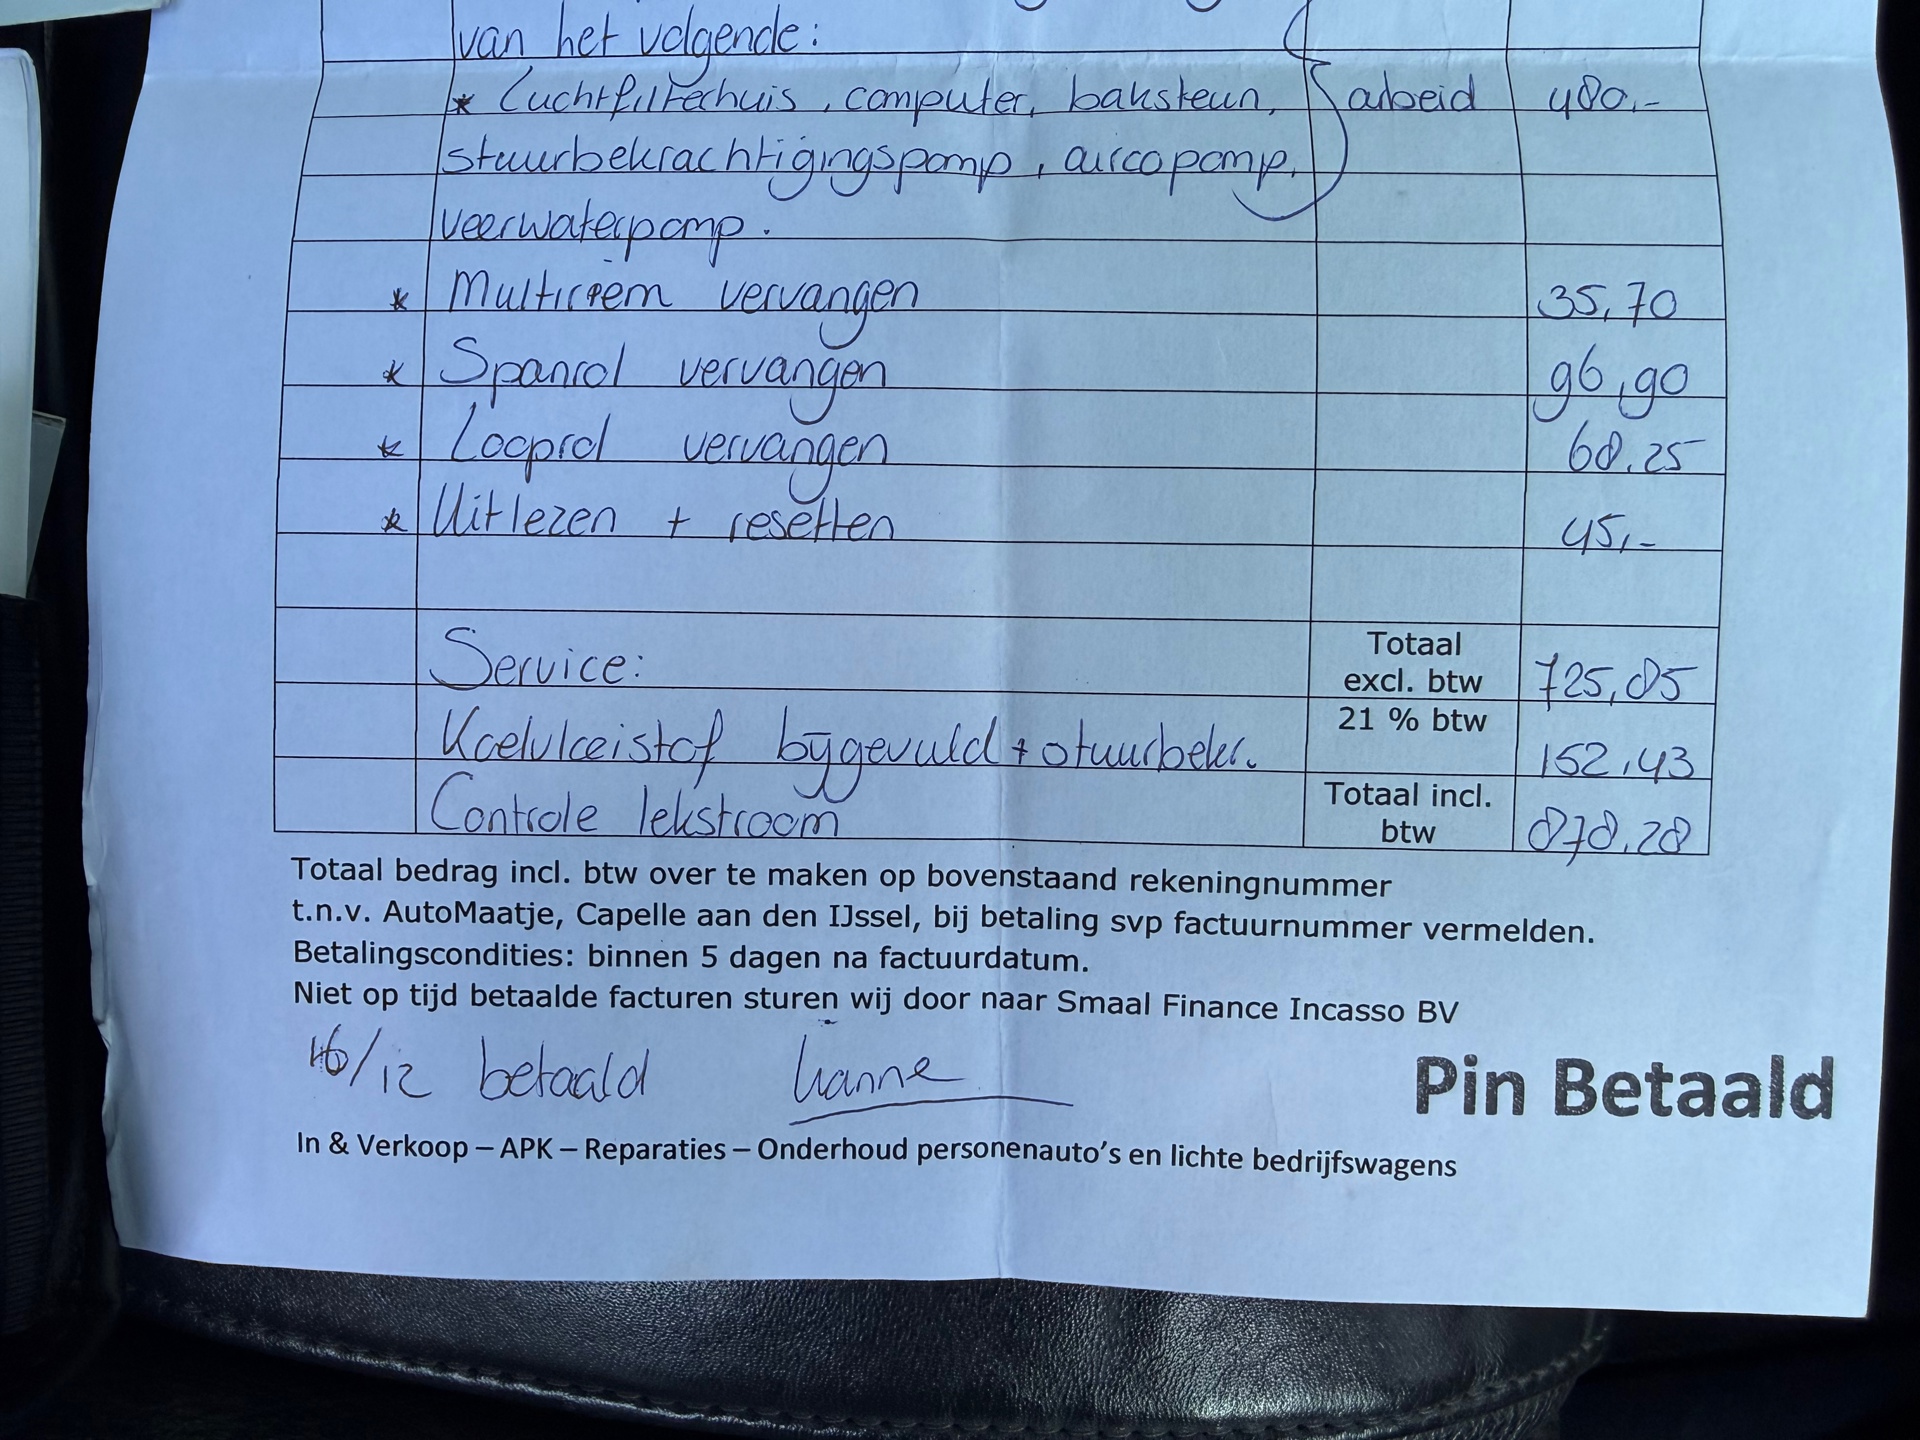 van het volgende:
* Luchtfilterhuis, computer, baksteun, arbeid 480,-
stuurbekrachtigingspomp, aircopomp,
veerwaterpomp.
* Multiriem vervangen 35,70
* Spanrol vervangen 96,90
* Looprol vervangen 68,25
* Uitlezen + resetten 45,-
Service: Totaal excl. btw 725,85
Koelvloeistof bijgevuld + stuurbekr. 21 % btw 152,43
Controle lekstroom Totaal incl. btw 878,28
Totaal bedrag incl. btw over te maken op bovenstaand rekeningnummer
t.n.v. AutoMaatje, Capelle aan den IJssel, bij betaling svp factuurnummer vermelden.
Betalingscondities: binnen 5 dagen na factuurdatum.
Niet op tijd betaalde facturen sturen wij door naar Smaal Finance Incasso BV
16/12 betaald
Pin Betaald
In & Verkoop – APK – Reparaties – Onderhoud personenauto's en lichte bedrijfswagens